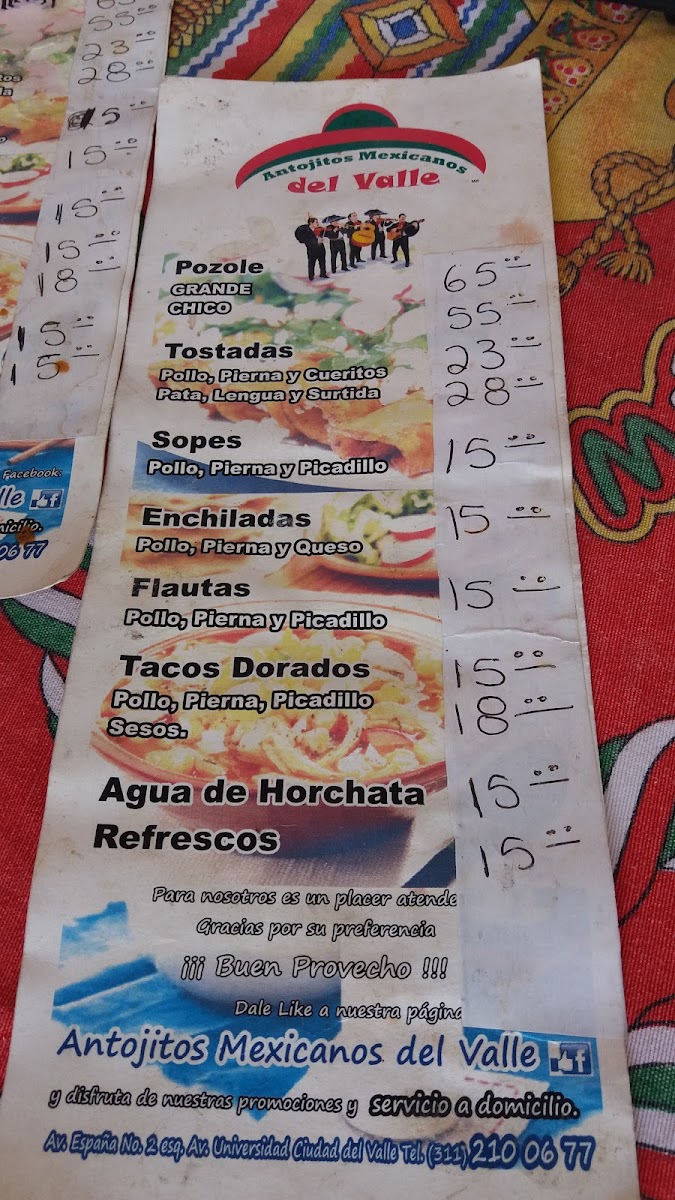 55
23
28
15
15
15
15
18
15
15
Facebook:
lle
icilio.
06 77
Antojitos Mexicanos
del Valle
Pozole
GRANDE 65
CHICO 55
Tostadas
Pollo, Pierna y Cueritos 23
Pata, Lengua y Surtida 28
Sopes
Pollo, Pierna y Picadillo 15
Enchiladas
Pollo, Pierna y Queso 15
Flautas
Pollo, Pierna y Picadillo 15
Tacos Dorados
Pollo, Pierna, Picadillo 15
Sesos. 18
Agua de Horchata 15
Refrescos 15
Para nosotros es un placer atende
Gracias por su preferencia
¡¡¡ Buen Provecho !!!
Dale Like a nuestra página
Antojitos Mexicanos del Valle f
y disfruta de nuestras promociones y servicio a domicilio.
Av. España No. 2 esq. Av. Universidad Ciudad del Valle Tel. (311) 210 06 77